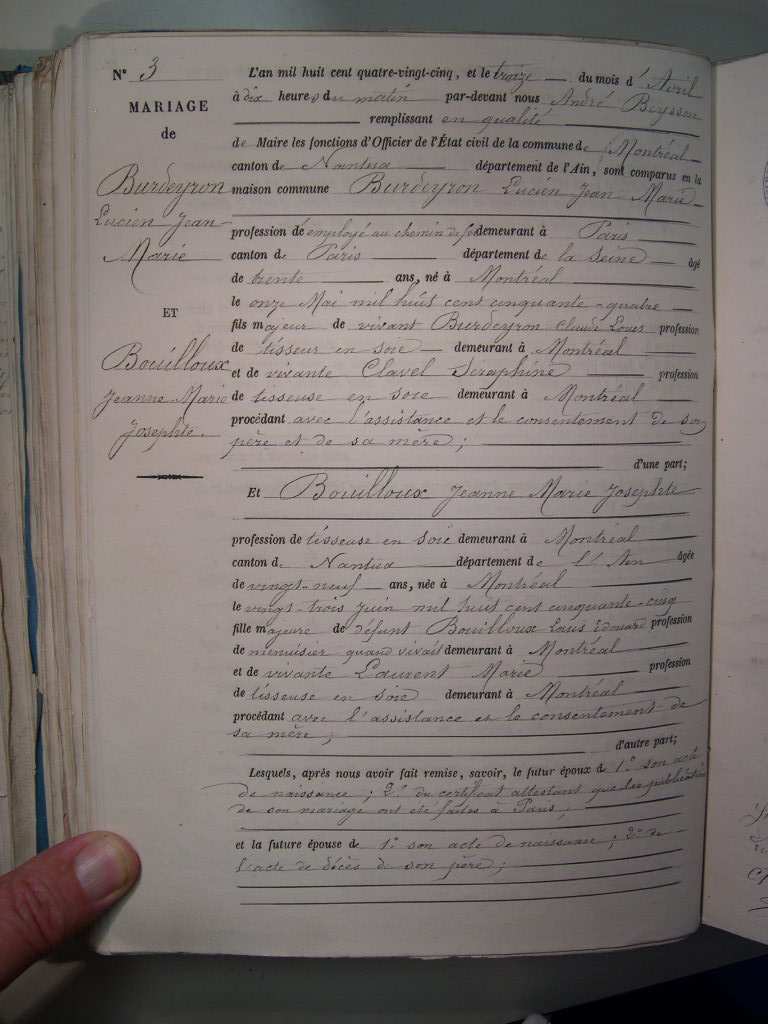 N° 3
MARIAGE
de
Burdeyron
Lucien Jean
Marie
ET
Bouilloux
Jeanne Marie
Josephte.
L'an mil huit cent quatre-vingt-cinq, et le treize du mois d' Avril
à dix heures du matin par-devant nous André Beysson
remplissant en qualité
de Maire les fonctions d'Officier de l'État civil de la commune de Montréal
canton de Nantua département de l'Ain, sont comparus en la
maison commune Burdeyron Lucien Jean Marie
profession de employé au chemin de fer demeurant à Paris
canton de Paris département de la Seine âgé
de trente ans, né à Montréal
le onze Mai mil huit cent cinquante-quatre
fils majeur de vivant Burdeyron Claude Louis profession
de tisseur en soie demeurant à Montréal
et de vivante Clavel Séraphine profession
de tisseuse en soie demeurant à Montréal
procédant avec l'assistance et le consentement de son
père et de sa mère;
d'une part;
Et Bouilloux Jeanne Marie Josephte
profession de tisseuse en soie demeurant à Montréal
canton de Nantua département de l'Ain âgée
de vingt-neuf ans, née à Montréal
le vingt-trois juin mil huit cent cinquante-cinq
fille majeure de défunt Bouilloux Louis Edouard profession
de menuisier quand vivait demeurant à Montréal
et de vivante Laurent Marie profession
de tisseuse en soie demeurant à Montréal
procédant avec l'assistance et le consentement de
sa mère;
d'autre part;
Lesquels, après nous avoir fait remise, savoir, le futur époux d 1° son acte
de naissance; 2° du certificat attestant que les publications
de son mariage ont été faites à Paris;
et la future épouse de 1° son acte de naissance; 2° de
l'acte de décès de son père;